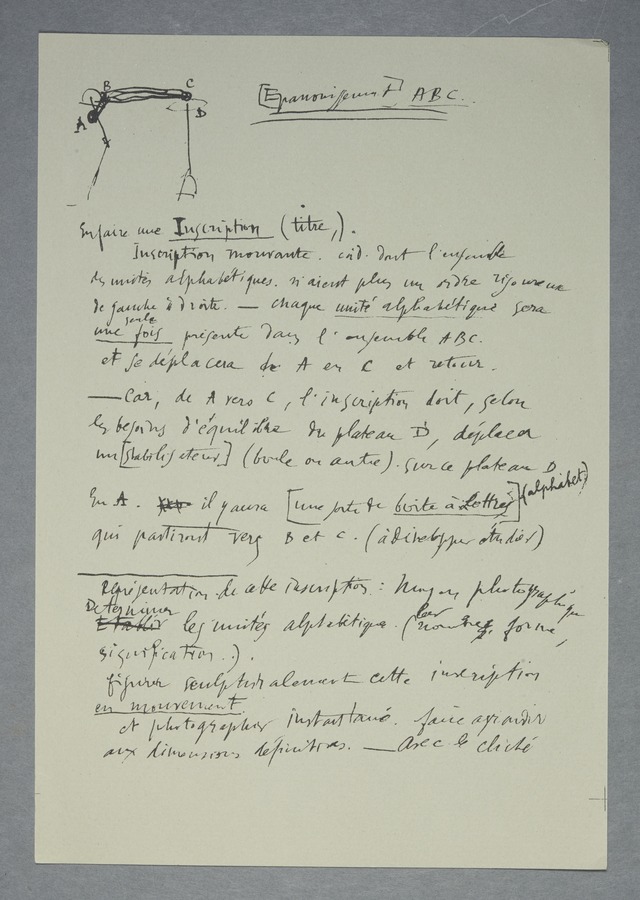 B C
A D
D
[Epanouissement] ABC.
En faire une Inscription (titre,).
Inscription mouvante. càd. dont l'ensemble
des unités alphabétiques. n'aient plus un ordre rigoureux
de gauche à droite. — chaque unité alphabétique sera
seule
une fois présente dans l'ensemble ABC.
et se déplacera de A en C et retour.
— Car, de A vers C, l'inscription doit, selon
les besoins d'équilibre du plateau D, déplacer
un [stabilisateur] (boule ou autre). sur ce plateau D
En A. il y aura [une sorte de boite à Lettres] (alphabet)
qui partiront vers B et C. (à développer étudier)
Représentation de cette inscription: Moyen photographique
Determiner
Etablir les unités alphabétique. (leur nombre, forme,
signification.).
figurer sculpturalement cette inscription
en mouvement
et photographier instantané. faire agrandir
aux dimensions définitives. — Avec le cliché